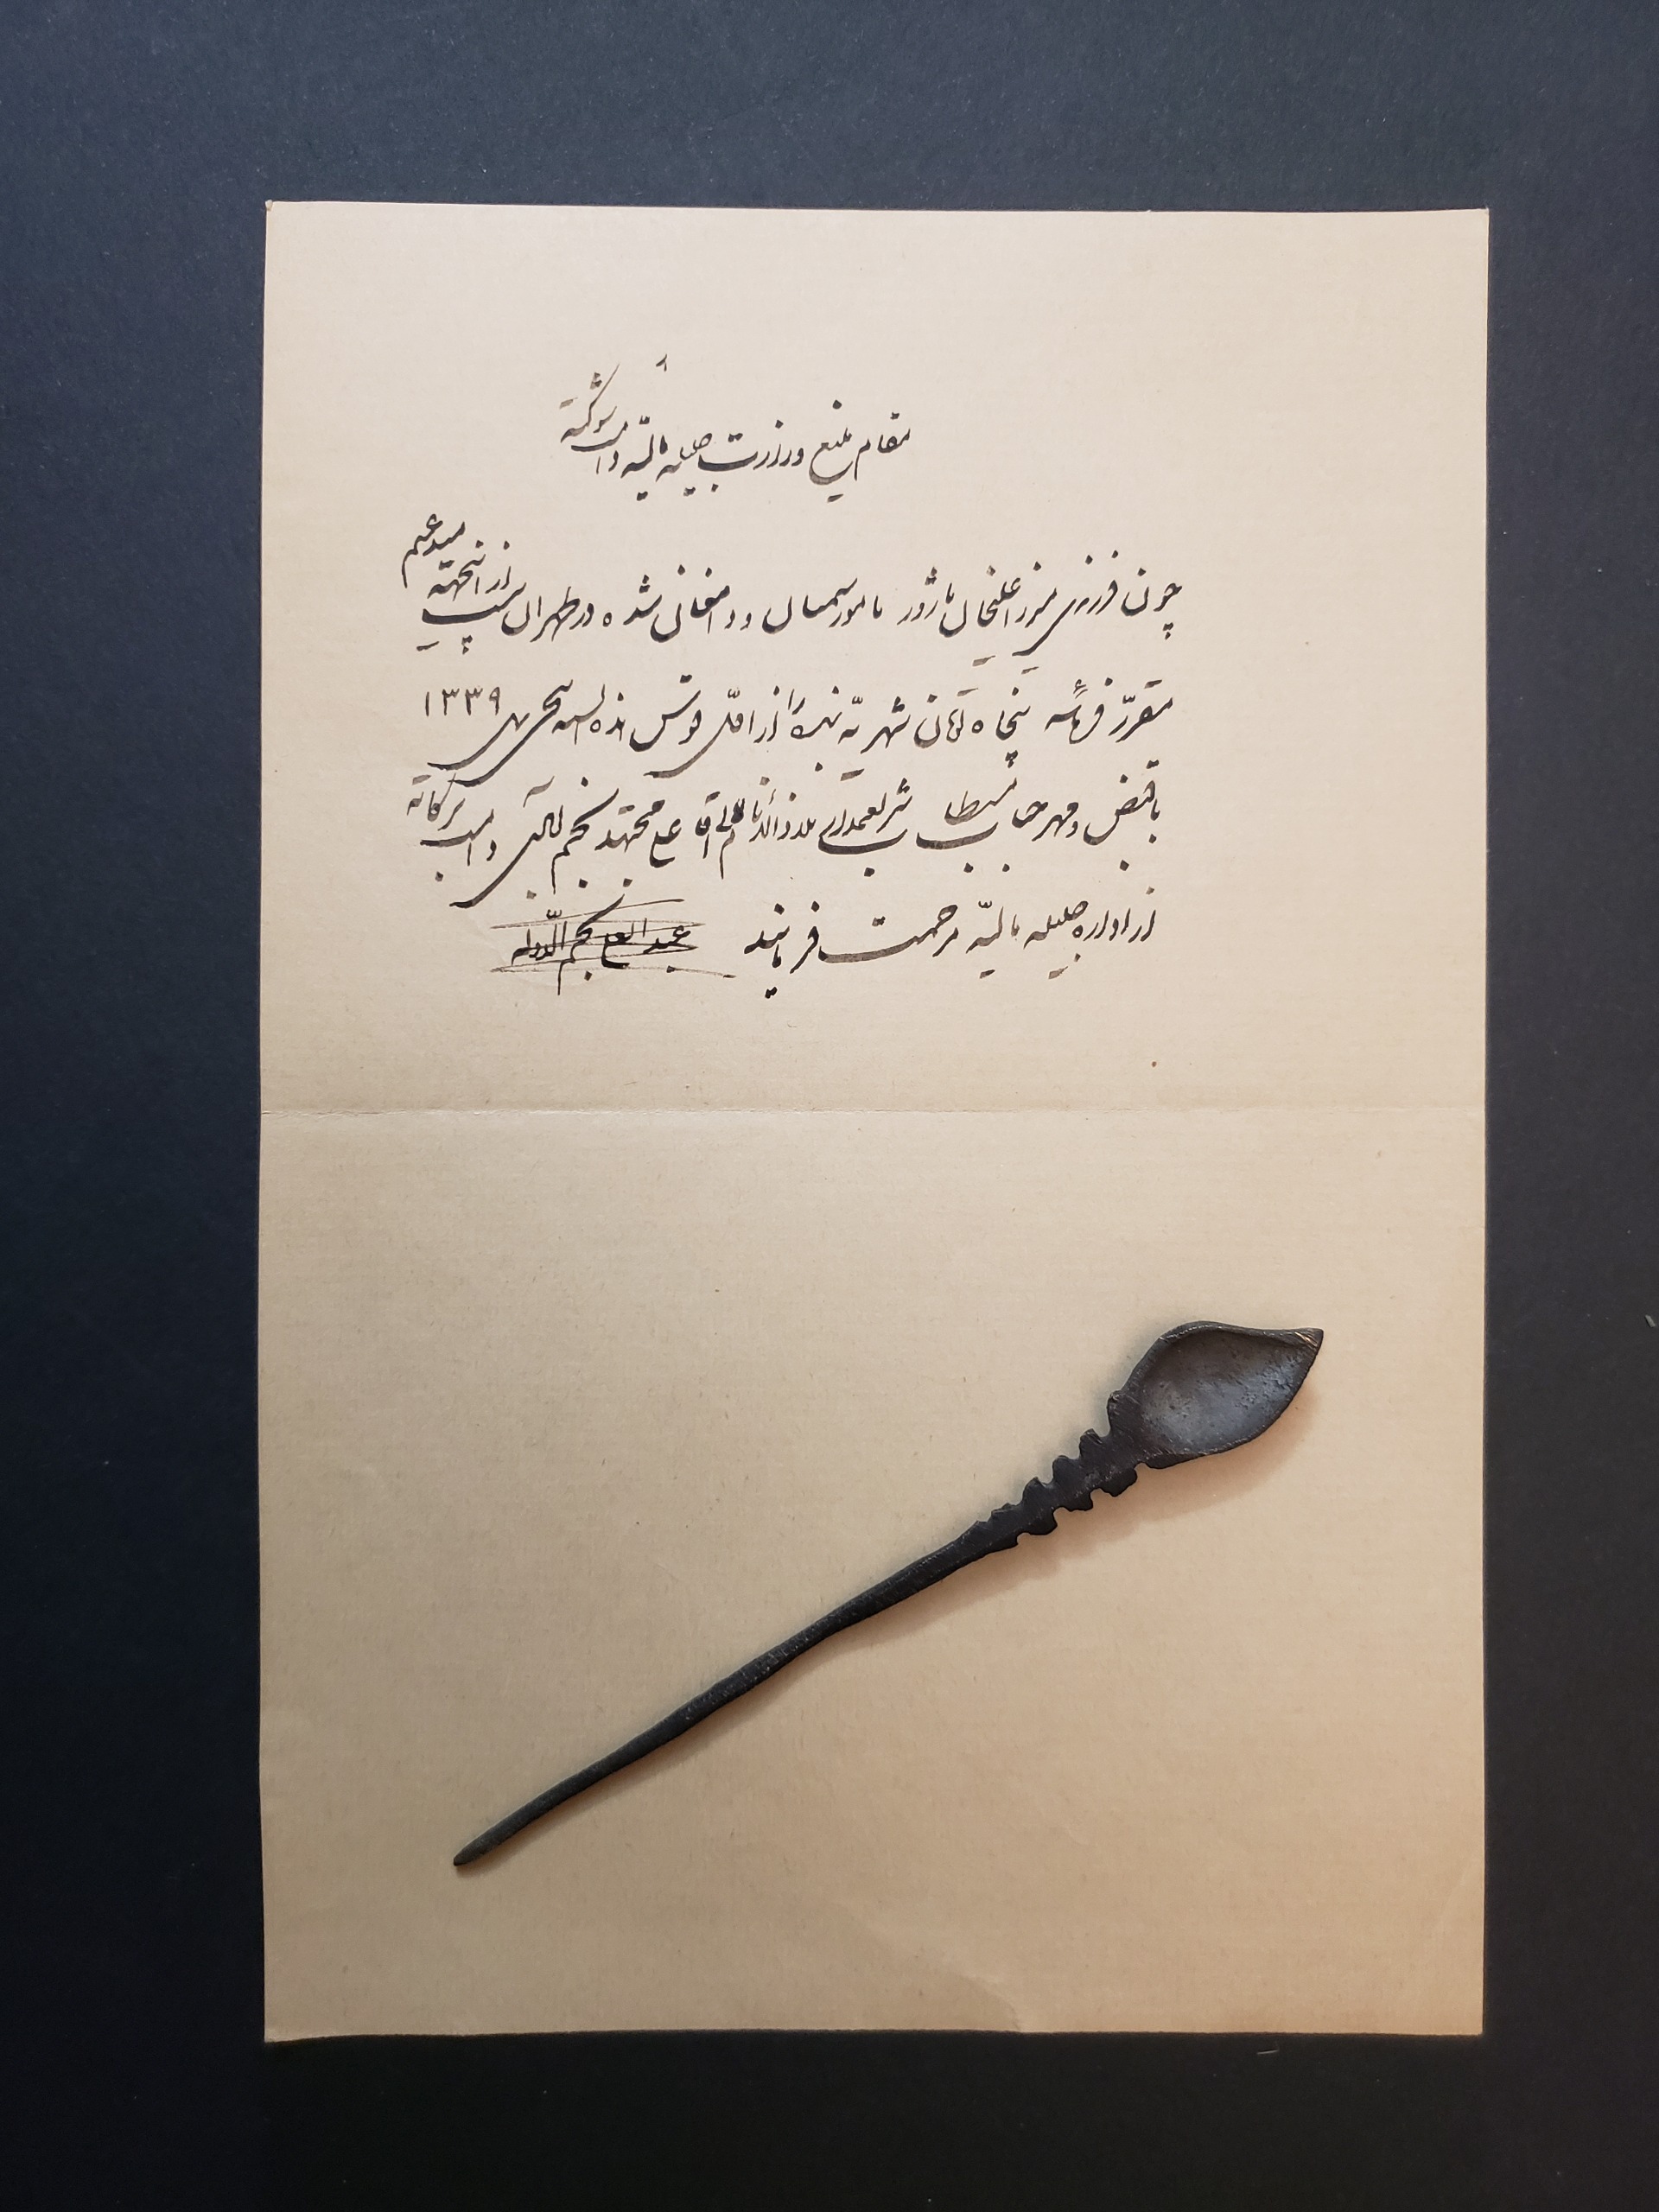 مقام منیع وزارت جلیله مالیه دامت شوکته
چون فرزندی میرزا علیخان مامور سمنان و دامغانی شده در طهران نیست از اینجهته مستدعیم
مقرر فرمائید پنجاه تومان شهریه بنده را از اول قوس هذه السنه ۱۳۳۹
با قبض و مهر جناب شریعتمدار ملاذ الانام آقای آقا مجتهد نجم آبادی دامت برکاته
از اداره جلیله مالیه مرحمت فرمایند عبد العلی نجم الدوله